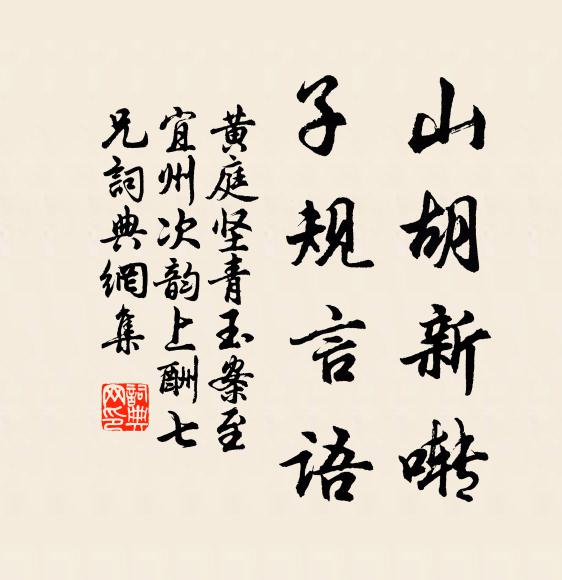 山胡新啭
子规言语
黄庭坚青玉案至
宜州次韵上酬七
兄詞典網集
詞典
网印